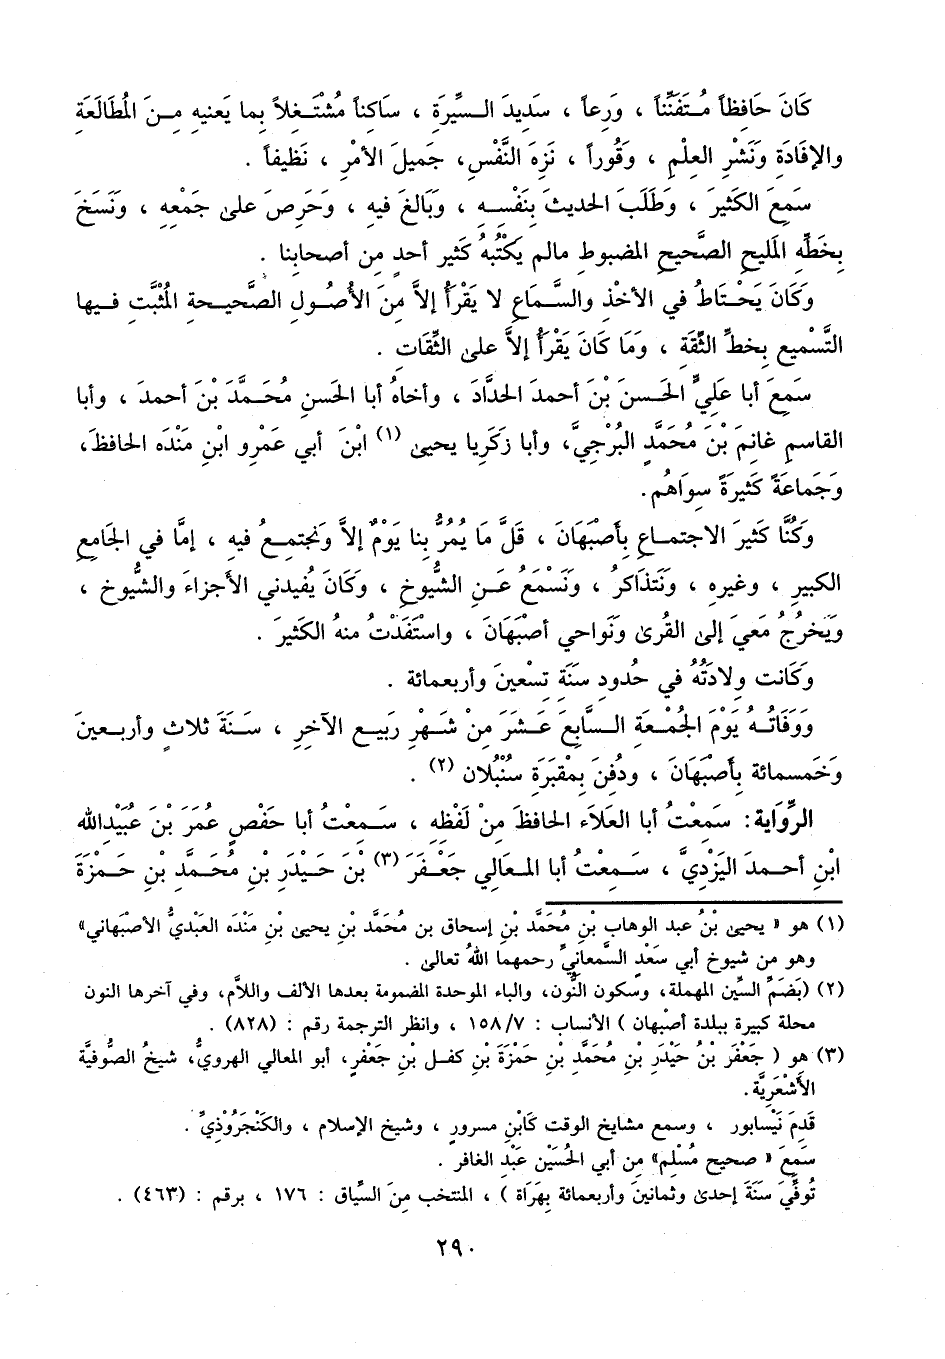 كَانَ حَافِظاً مُتَفَنِّناً ، وَرِعاً ، سَدِيدَ السِّيرَةِ ، سَاكناً مُشْتَغلاً بما يَعنيهِ مِنَ المُطَالَعَةِ
والإفَادَةِ وَنَشْرِ العِلْمِ ، وَقُوراً ، نَزِهَ النَّفْسِ، جَميلَ الأمْرِ ، نَظيفاً .
سَمِعَ الكَثيرَ ، وَطَلَبَ الحديثَ بِنَفْسِهِ ، وَبَالَغَ فيهِ ، وَحَرَصَ على جَمْعِهِ ، وَنَسَخَ
بِخَطِّهِ المَليحِ الصَّحيحِ المضبوطِ مالم يَكْتُبْهُ كَثير أحدٍ من أصحابنا .
وَكَانَ يَحْتَاطُ في الأخْذِ والسَّمَاعِ لا يَقْرَأُ إلاَّ مِنَ الأُصُولِ الصَّحيحةِ المُثْبَتِ فيها
التَّسْميعِ بِخطِّ الثِّقَةِ ، وَمَا كَانَ يَقْرَأُ إلاَّ على الثِّقَاتِ .
سَمِعَ أبا عَليٍّ الحَسنَ بْنَ أحمدَ الحدَّادَ ، وأخاهُ أبا الحَسنِ مُحَمَّدَ بْنَ أحمدَ ، وأبا
القاسمِ غانِمَ بْنَ مُحَمَّدٍ البُرْجيَّ، وأبا زَكَريا يحيىٰ (١) ابْنَ أبي عَمْرو ابْنِ مَنْدَه الحافظَ،
وَجَماعَةً كَثيرَةً سِوَاهُم.
وَكُنَّا كَثيرَ الاجتماعِ بِأصْبَهَانَ ، قَلَّ مَا يُمُرُّ بنا يَوْمٌ إلاَّ وَنجتمِعُ فيهِ ، إمَّا في الجَامعِ
الكبيرِ ، وغيرِهِ ، وَنَتذَاكرُ ، وَنَسْمَعُ عَنِ الشُّيوخِ ، وَكَانَ يُفيدني الأجزاءَ والشُّيوخَ ،
وَيَخرُجُ مَعيَ إلى القُرىٰ ونَواحي أصْبَهَانَ ، واستَفَدْتُ منهُ الكَثيرَ .
وَكَانت وِلادَتُهُ في حُدودِ سَنَةِ تِسْعينَ وأربعمائة .
وَوَفَاتُهُ يَوْمَ الجُمْعَةِ السَّابعَ عَشَرَ مِنْ شَهْرِ رَبيعِ الآخرِ ، سَنَةَ ثلاثٍ وأربعينَ
وَخَمسمائة بِأصْبَهَانَ ، ودُفنَ بِمقْبَرَةِ سُنْبُلان (٢) .
الرِّوَاية: سَمعْتُ أبا العَلاَء الحافظَ مِنْ لَفْظِهِ ، سَمعْتُ أبا حَفْصٍ عُمَرَ بْنَ عُبَيْدالله
ابْنِ أحمدَ اليَزْديَّ ، سَمعْتُ أبا المعَالي جَعْفَرَ (٣) بْنَ حَيْدَرِ بْنِ مُحَمَّدِ بْنِ حَمْزَةَ
(١) هو « يحيىٰ بْنُ عبد الوهاب بْنِ مُحَمَّدِ بْنِ إسحاق بن مُحَمَّدِ بْنِ يحيىٰ بْنِ مَنْدَه العَبْديُّ الأصْبَهاني»
وهو من شيوخِ أبي سَعْدٍ السَّمعانيِّ رحمهما اللهُ تعالى .
(٢) (بَضَمِّ السِّين المهملة، وسكون النُّون، والباء الموحدة المضمومة بعدها الألف واللاَّم، وفي آخرها النون
محلة كبيرة ببلدة أصْبهان ) الأنساب : ١٥٨/٧ ، وانظر الترجمة رقم : (٨٢٨) .
(٣) هو ( جَعْفَر بْنُ حَيْدَرِ بْنِ مُحَمَّدِ بْنِ حَمْزَةَ بْنِ كفـل بْنِ جَعْفَرٍ، أبو المعالي الهرويُّ، شيخُ الصُّوفيَّة
الأَشْعَريَّة.
قَدِمَ نَيْسابور ، وسمع مشايخ الوقت كَابْنِ مسرورٍ ، وشيخ الإسلام ، والكَنْجَرُوْذيِّ .
سَمِعَ « صحيح مُسْلِم» من أبي الحُسَيْن عَبْدِ الغافر .
تُوفِّيَ سَنَةَ إحدىٰ وثمانينَ وأربعمائة بِهَرَاة ) ، المنتخب مِنَ السِّياق : ١٧٦ ، برقم : (٤٦٣) .
٢٩٠